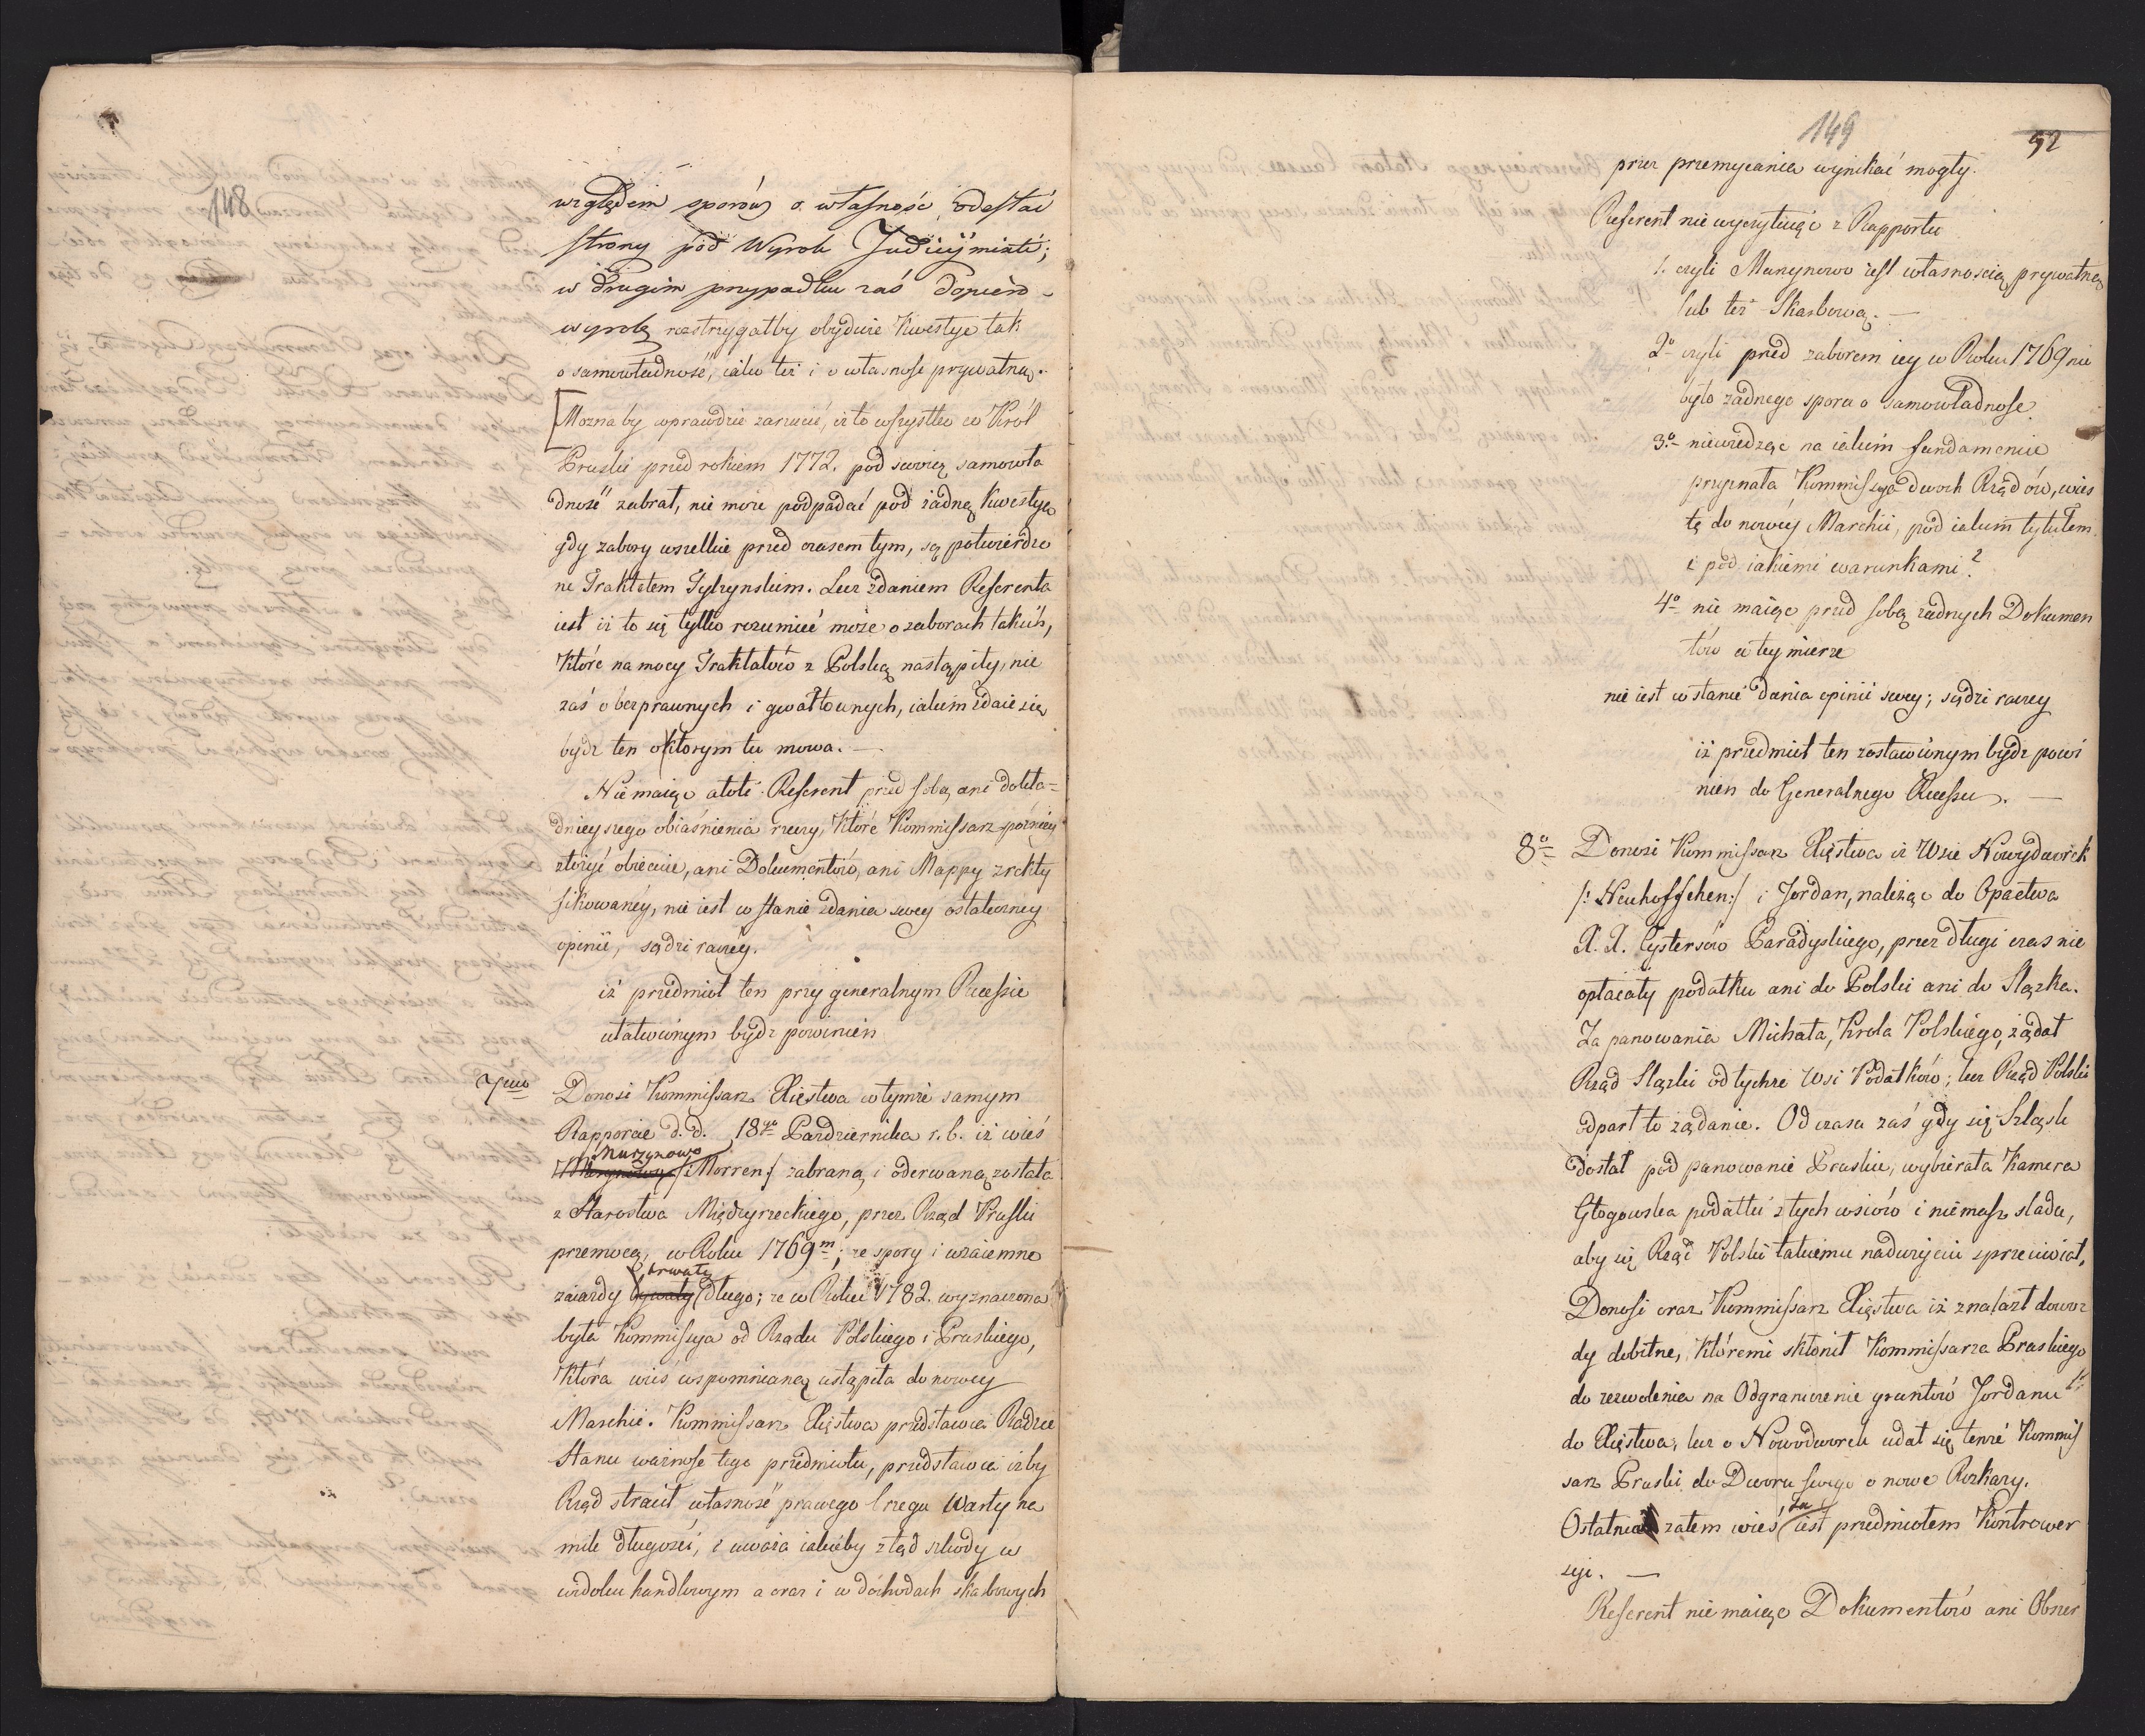 148
względem sporów o własność odesłać
strony pod Wyrok Judicij mixti;
w drugim przypadku zaś
wyrok rozstrzygałby obydwie kwestye tak
o samowładność, iako też i o własność prywatną.
Możnaby wprawdzie zarzucić, iż to wszystko co Król
Pruski przed rokiem 1772. pod swoią samowła
dność zabrał, nie może podpadać pod żadną kwestyą
gdy zabory wszelkie przed czasem tym, są potwierdzo
ne Traktatem Tylżyńskim. Lecz zdaniem Referenta
iest iż to się tylko rozumieć może o zaborach takich,
które na mocy Traktatów z Polską nastąpiły, nie
zaś o bezprawnych i gwałtownych, iakim zdaie się
bydź ten o którym tu mowa. —
Nie maiąc atoli Referent przed sobą ani dokła=
dnieyszego obiaśnienia rzeczy, które Kommissarz późniey
złożyć obiecuie, ani Dokumentów, ani Mappy zrekty
fikowaney, nie iest w stanie zdania swey ostateczney
opinii, sądzi raczéy.
iż przedmiot ten przy generalnym Recessie
ułatwionym bydź powinien
7mo Donosi Kommissarz Xięstwa w tymże samym
Rapporcie d. d. 18go Pazdziernika r. b. iż wieś
Murzynowo
/: Morren :/ zabraną i oderwaną została
z Starostwa Międzyrzeckiego, przez Rząd Pruski
przemocą, w Roku 1769m; że spory i wzaiemne
trwały
zaiazdy bywały długo; że w Roku 1782. wyznaczona
była Kommissya od Rządu Polskiego i Pruskiego,
która wieś wspomnianą ustąpiła do nowey
Marchii. Kommissarz Xięstwa przedstawia Radzie
Stanu ważność tego przedmiotu, przedstawia iżby
Rząd stracił własność prawego brzegu Warty na
mile długości, i uważa iakieby ztąd szkody w
widoku handlowym a oraz i w dochodach skarbowych
149
92
przez przemycania wynikać mogły.
Referent nie wyczytuiąc z Rapportu
1. czyli Murzynowo iest własnością prywatną
lub też Skarbową. —
2o czyli przed zaborem iey w Roku 1769 nie
było żadnego sporu o samowładność.
3o niewiedząc na iakim fundamencie
przyznała Kommissyja dwoch Rządów, wieś
tę do nowéy Marchii, pod iakim tytułem
i pod iakiemi warunkami?
4o nie maiąc przed sobą żadnych Dokumen
tów w tey mierze
nie iest w stanie dania opinii swey; sądzi raczey
iż przedmiot ten zostawionym bydź powi
nien do Generalnego Recessu. —
8o Donosi Kommissarz Xięstwa iż Wsie Nowydworek
/: Neuhoffchen :/ i Jordan, należące do Opactwa
X. X. Cystersów Paradyskiego, przez długi czas nie
opłacały podatku ani do Polski ani do Slązka.
Za panowania Michała, Króla Polskiego, żądał
Rząd Slązki od tychże Wsi Podatków; lecz Rząd Polski
odparł to żądanie. Od czasu zaś gdy się Szląsk
dostał pod panowanie Pruskie, wybierała Kamera
Głogowska podatki z tych wsiów i niemasz sladu,
aby się Rząd Polski takiemu nadużyciu sprzeciwiał,
Donosi oraz Kommissarz Xięstwa iż znalazł dowo
dy dobitne, któremi skłonił Kommissarza Pruskiego
do zezwolenia na Odgraniczenie gruntów Jordanu
do Xięstwa; lecz o Nowodworek udał się tenże Kommis
sarz Pruski do Dworu swego o nowe Rozkazy.
Ostatnia zatem wieś, ta iest przedmiotem Kontrower
syi. —
Referent nie maiąc Dokumentów ani Obszer